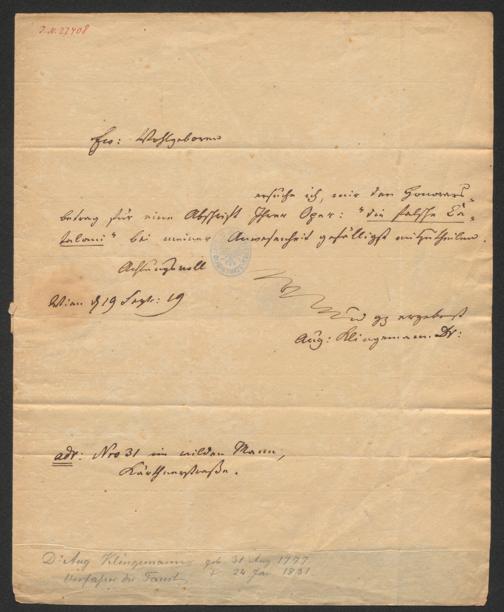 I.N. 27408
Ew: Wohlgeboren
ersuche ich, mir den Honorars-
betrag für eine Abschrift Ihrer Oper: "die falsche Ca-
talani" bei meiner Anwesenheit gefälligst mitzutheilen.
Achtungsvoll
Wien d 19 Sept: 19
ergebenst
Aug: Klingemann. Dr:
adr: Nro 31 im wilden Mann,
Kärthnerstraße.
Dr Aug Klingemann geb 31 Aug 1777
Verfasser des Faust † 24 Jan 1831